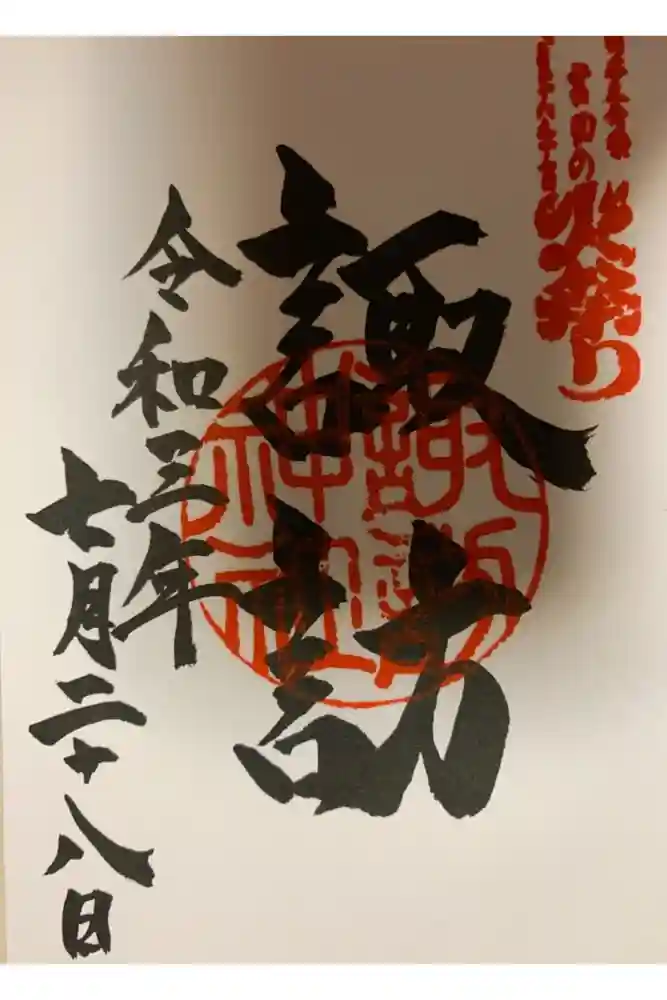 吉田の火祭り
諏訪
諏訪
神社
令和三年
七月二十八日